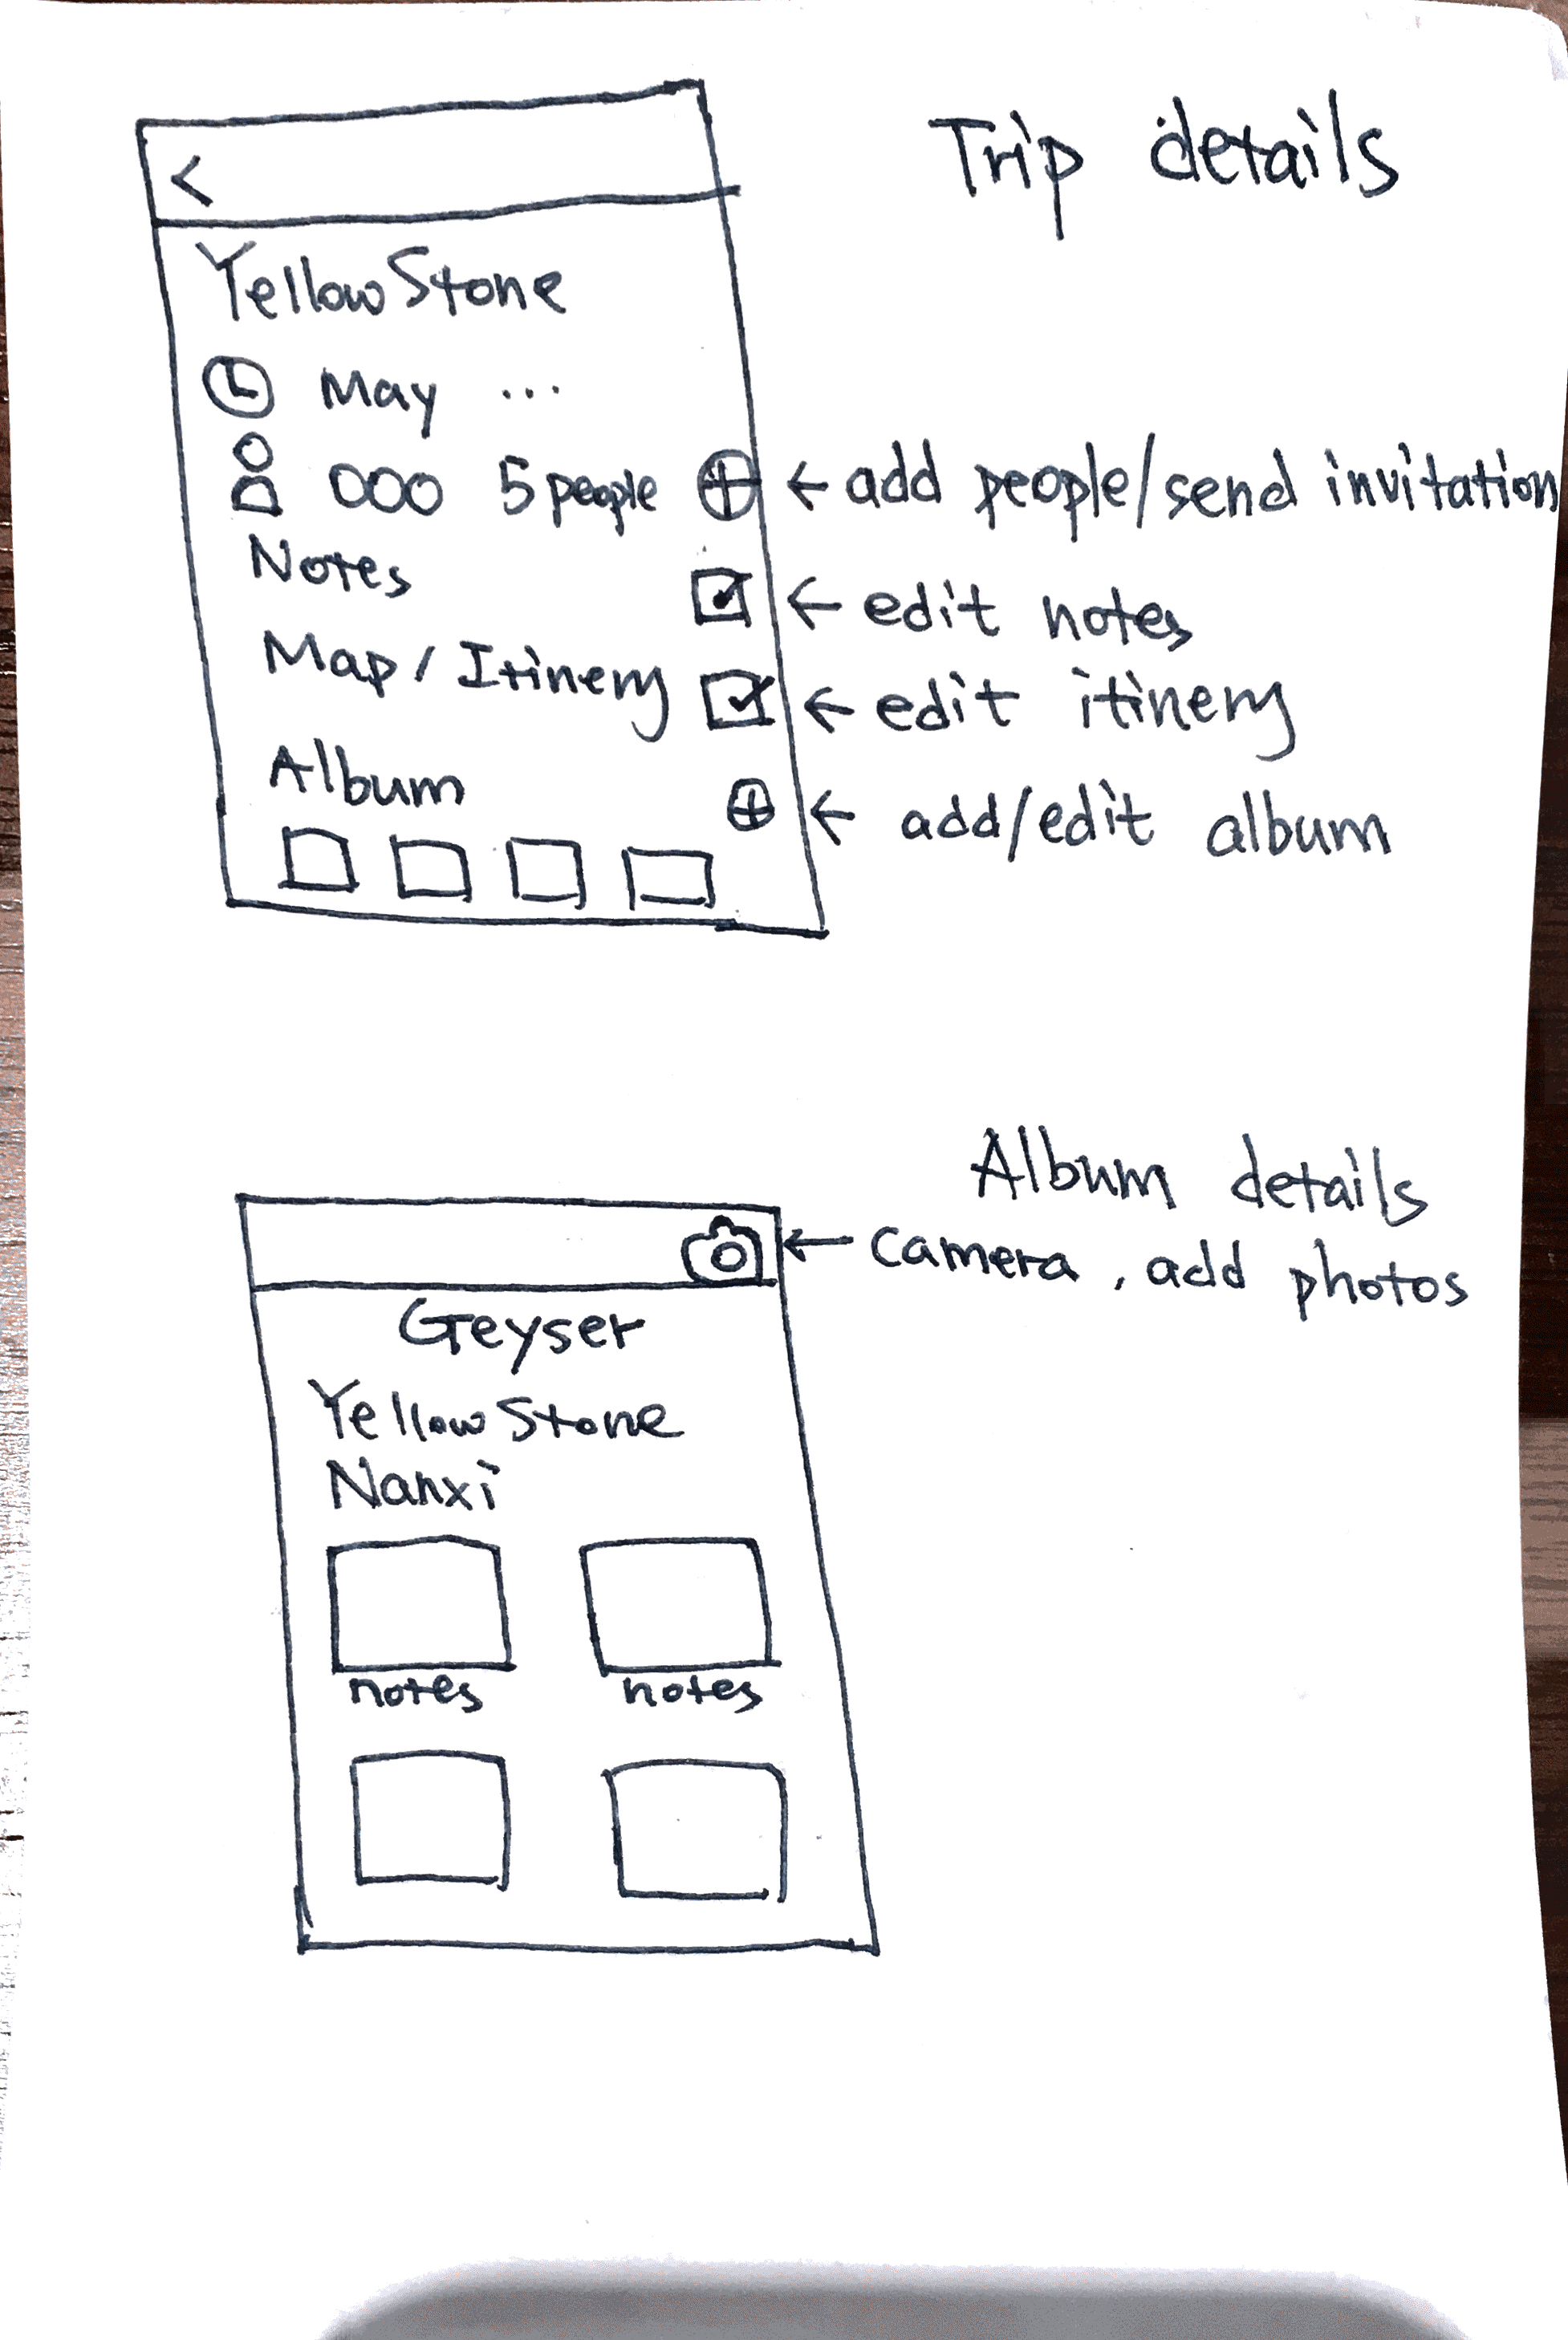 Trip details
<
YellowStone
May ...
5 people ← add people/send invitation
Notes
← edit notes
Map/Itinery
← edit itinery
Album
← add/edit album
Album details
← camera, add photos
Geyser
YellowStone
Nanxi
notes notes